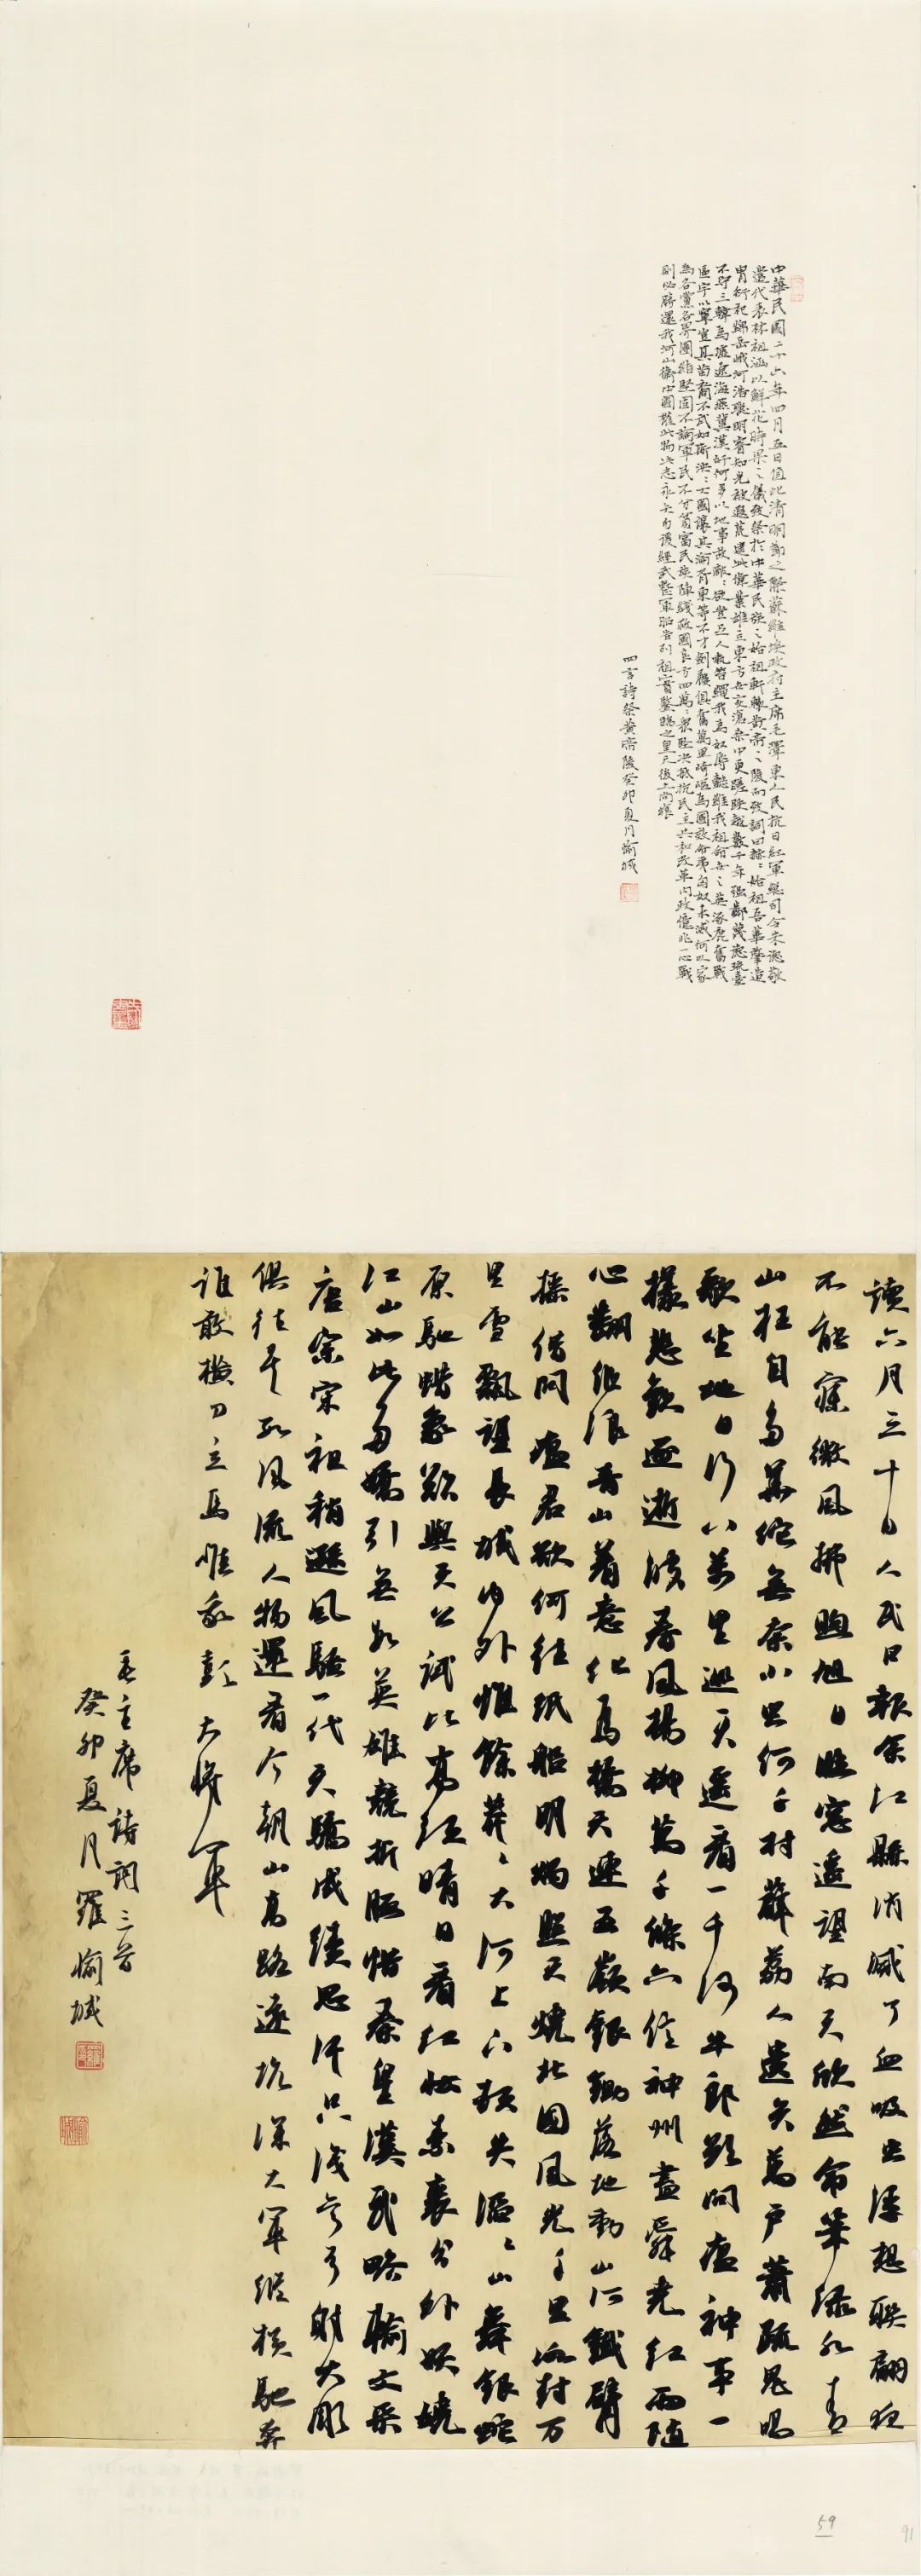 中華民國二十六年四月五日值此清明節之際蘇維埃政府主席毛澤東人民抗日紅軍總司令朱德敬
遣代表林祖涵以鮮花時果之儀致祭於中華民族之始祖軒轅黃帝之陵而致詞曰赫々始祖吾華肇造
冑衍祀綿岳峨河浩聰明睿知光被遐荒建此偉業雄立東方世變滄桑中更蹉跌越數千年強鄰蔑德琉臺
不守三韓為墟遼海燕冀漢奸何多以地事敵々欲豈足人執笞繩我為奴辱懿維我祖命世之英涿鹿奮戰
區宇以寧豈其苗裔不武如斯泱々大國讓其淪胥東等不才劍屨俱奮萬里崎嶇為國效命夷匈奴未滅何以家
為各黨各界團結堅固不論軍民不分貧富民族陣綫救國良方四萬々眾堅決抵抗民主共和改革內政億兆一心戰
則必勝還我河山衛中國權此物此志永矢勿諼經武整軍昭告列祖實鑒臨之皇天后土尚饗
四言詩祭黃帝陵癸卯夏月愉城
讀六月三十日人民日報余江縣消滅了血吸虫浮想聯翩夜
不能寐微風拂煦旭日臨窗遙望南天欣然命筆綠水青
山枉自多華佗無奈小虫何千村薜荔人遺矢萬戶蕭疏鬼唱
歌坐地日行八萬里巡天遙看一千河牛郎欲問瘟神事一
樣悲歡逐逝波春風楊柳萬千條六億神州盡舜堯紅雨隨
心翻作浪青山着意化為橋天連五嶺銀鋤落地動山河鐵臂
搖借問瘟君欲何往紙船明燭照天燒北國風光千里冰封万
里雪飄望長城內外惟餘莽々大河上下頓失滔々山舞銀蛇
原馳蠟象欲與天公試比高須晴日看紅妝素裹分外妖嬈
江山如此多嬌引無數英雄競折腰惜秦皇漢武略輸文采
唐宗宋祖稍遜風騷一代天驕成績思汗只識彎弓射大雕
俱往矣數風流人物還看今朝山高路遠坑深大軍縱橫馳奔
誰敢橫刀立馬唯我彭大將軍
毛主席詩詞三首
癸卯夏月羅愉城
59
91